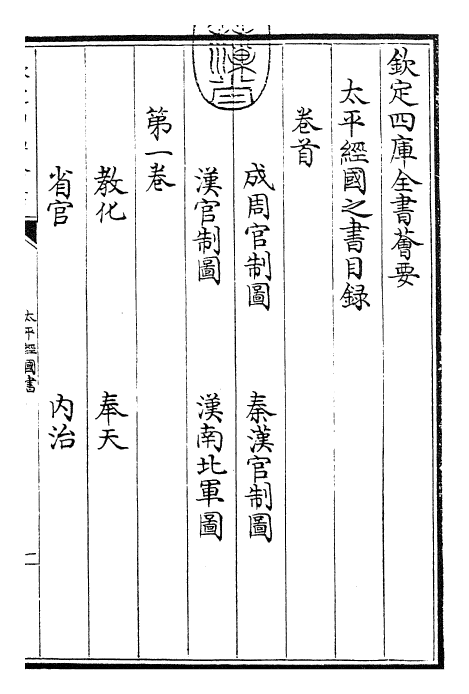 欽定四庫全書薈要
太平經國之書目録
卷首
成周官制圖　秦漢官制圖
漢官制圖　漢南北軍圖
第一卷
教化　奉天
省官　内治
太平經國書
二